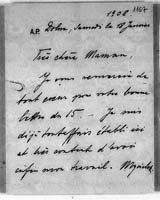 1908
1167
A.P. Dohna, Samedi le 18 Janvier
Très chère Maman,
Je vous remercie de
tout cœur pour votre bonne
lettre de 15 – Je suis
déjà tout à fait établi ici
et très content d'avoir
mon travail.